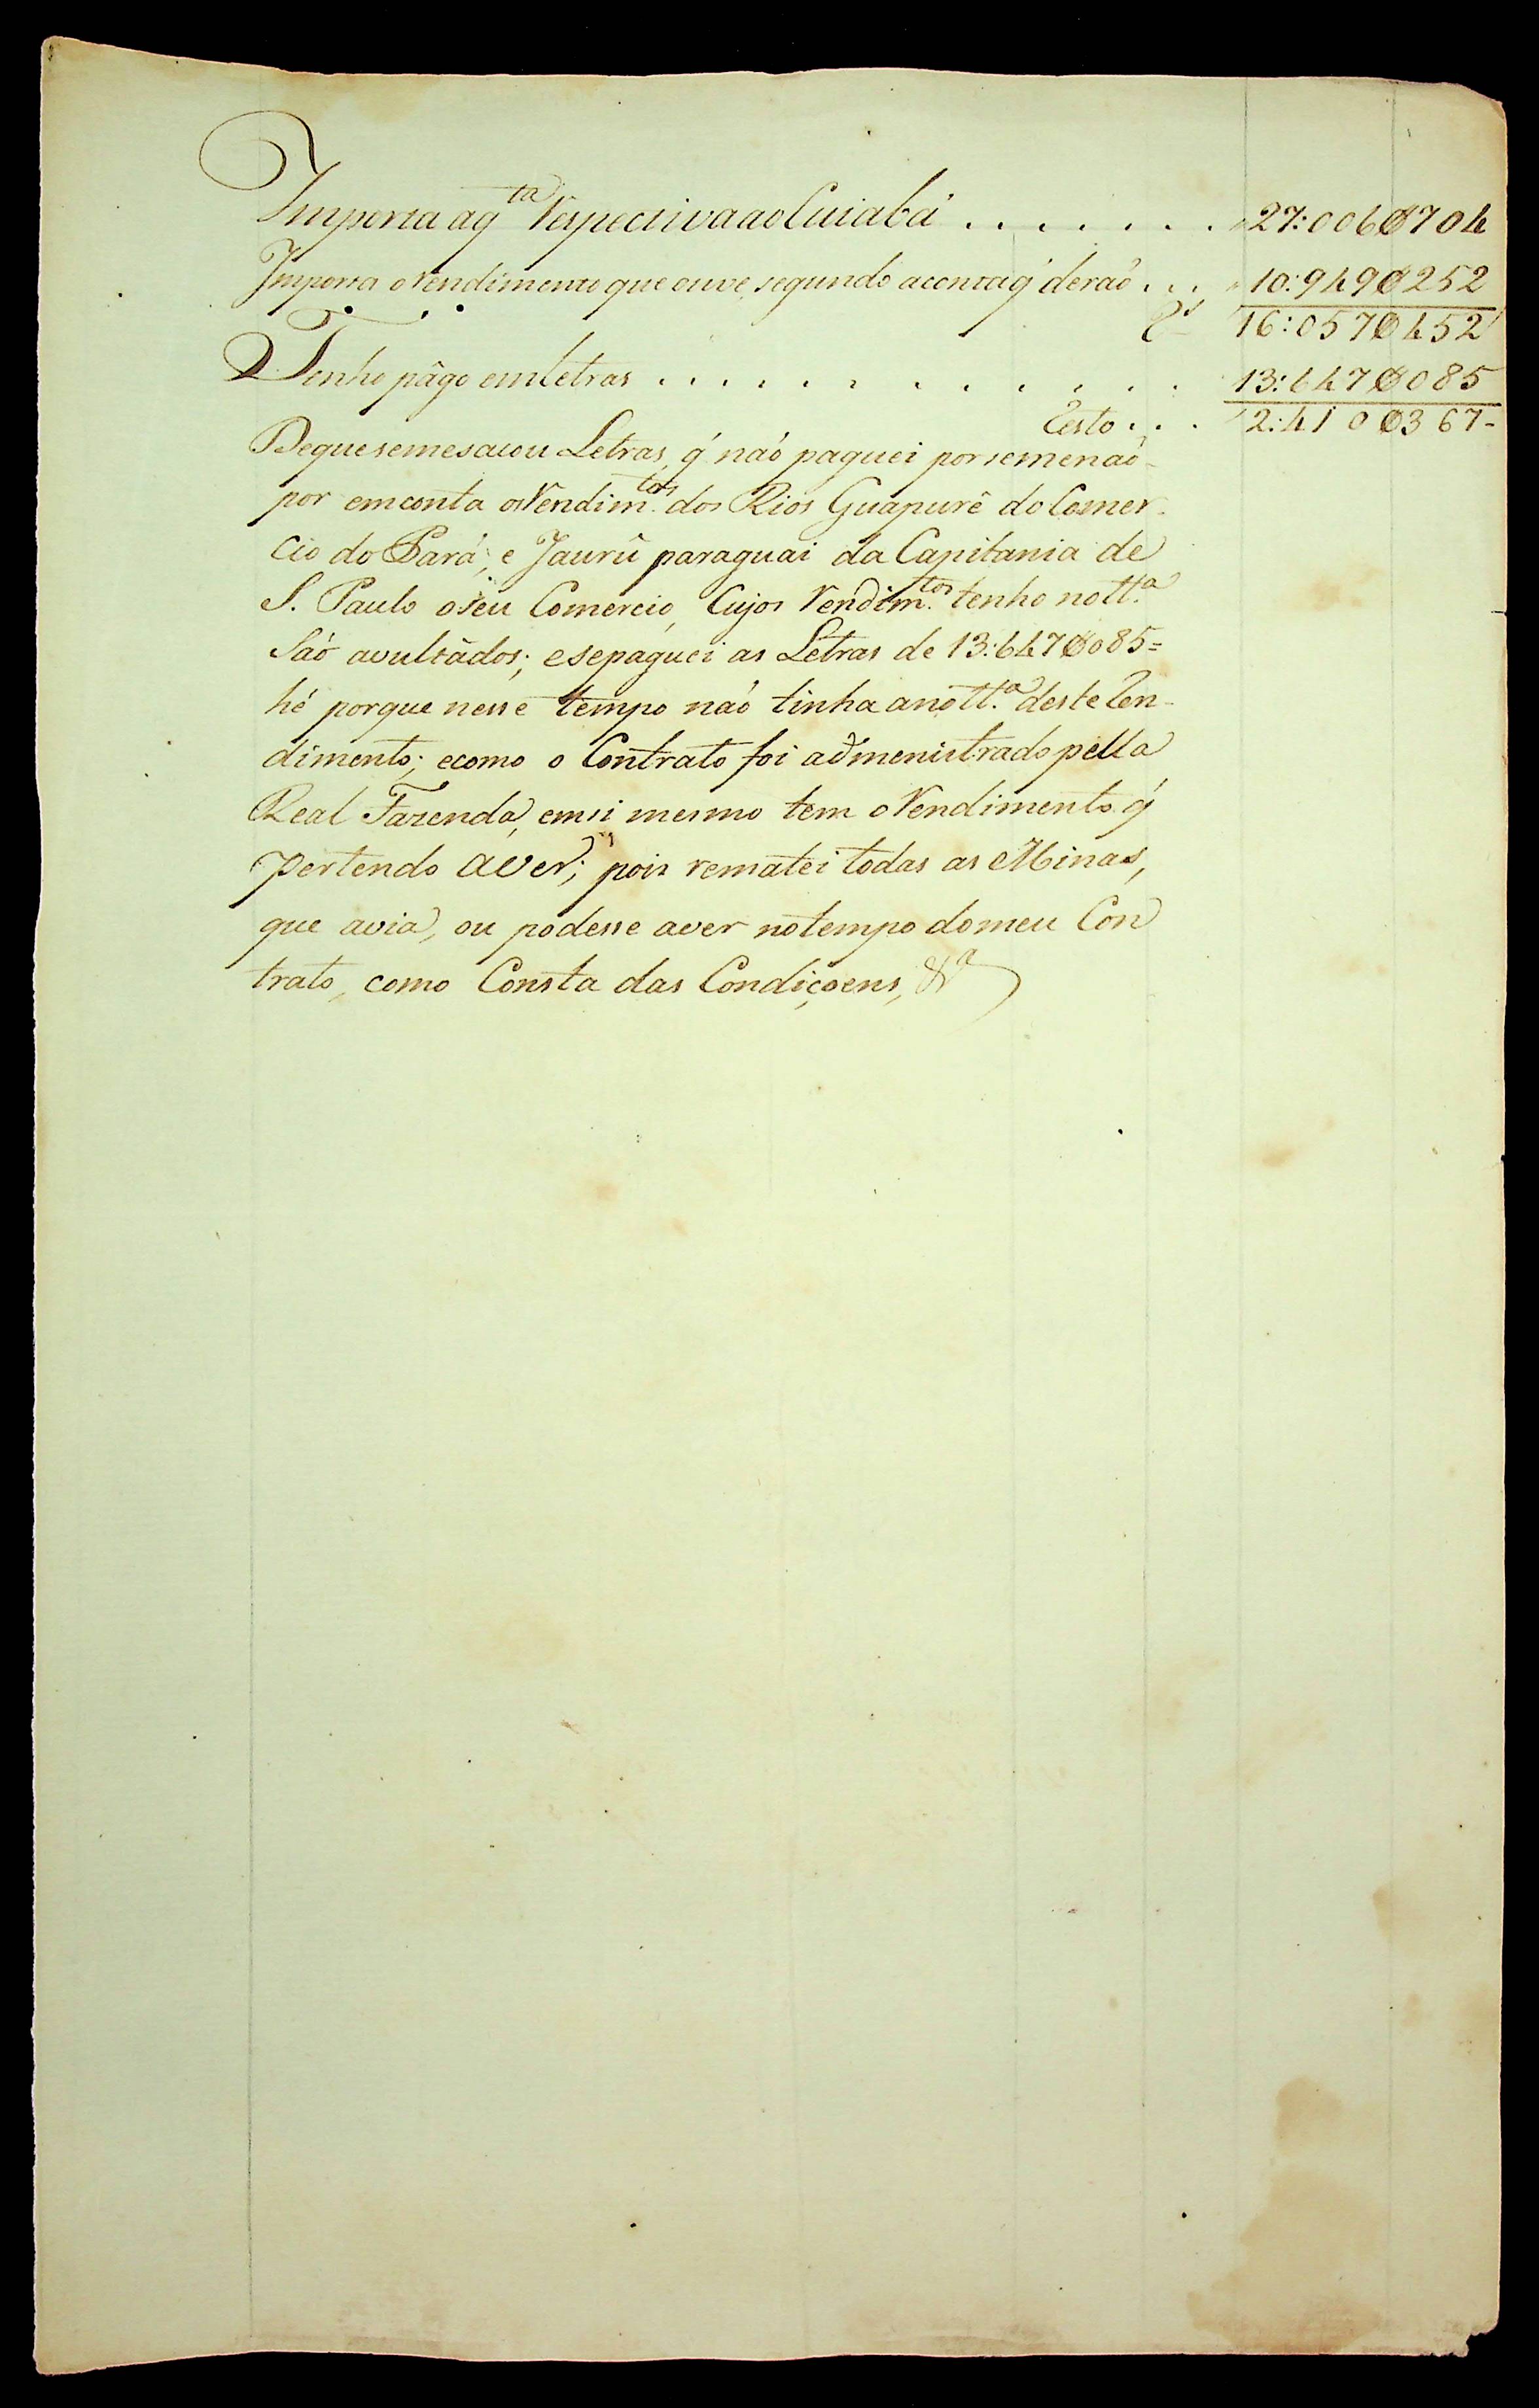 Importa a q.ta respectiva ao Cuiabá . . . . . . . 27:006$704
Importa o rendimento que ouve, segundo a conta q' deraõ . . . 10:949$252
R.s 16:057$452
Tenho pâgo em letras . . . . . . . . . . . . . 13:647$085
Resto . . . 2:410$367-
De que se me sacou Letras, q' naõ paguei por se me naõ
por em conta os Rendim.tos dos Rios Guapurê do Comer-
cio do Pará; e Jaurû paraguai da Capitania de
S. Paulo o seu Comercio, Cujos Rendim.tos tenho nott.a
Saõ avultâdos; e se paguei as Letras de 13:647$085=
hé porque nesse tempo naõ tinha a nott.a deste Ren-
dimento; e como o Contrato foi admenistrado pella
Real Fazenda, em si mesmo tem o Rendimento q'
pertendo aver; pois rematei todas as Minas,
que avia, ou podesse aver no tempo do meu Con
trato, como Consta das Condiçoens, &a